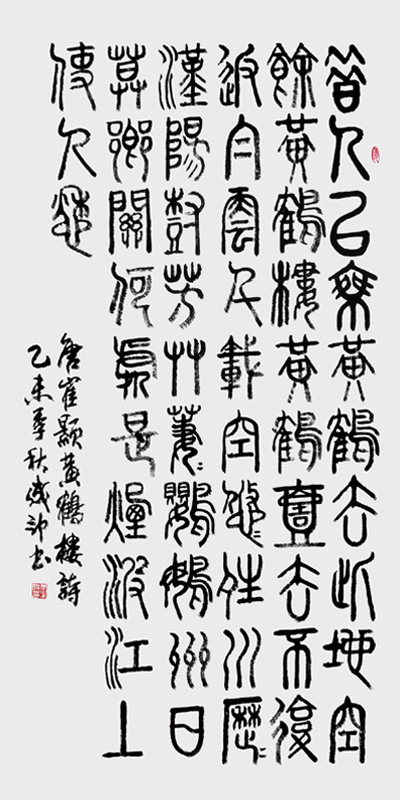 昔人已乘黃鶴去此地空
餘黃鶴樓黃鶴壹去不復
返白雲千載空悠〻晴川歷〻
漢陽樹芳艸萋〻鸚鵡洲日
莫鄉關何處是煙波江上
使人愁
唐崔顥黃鶴樓詩
乙未年秋書